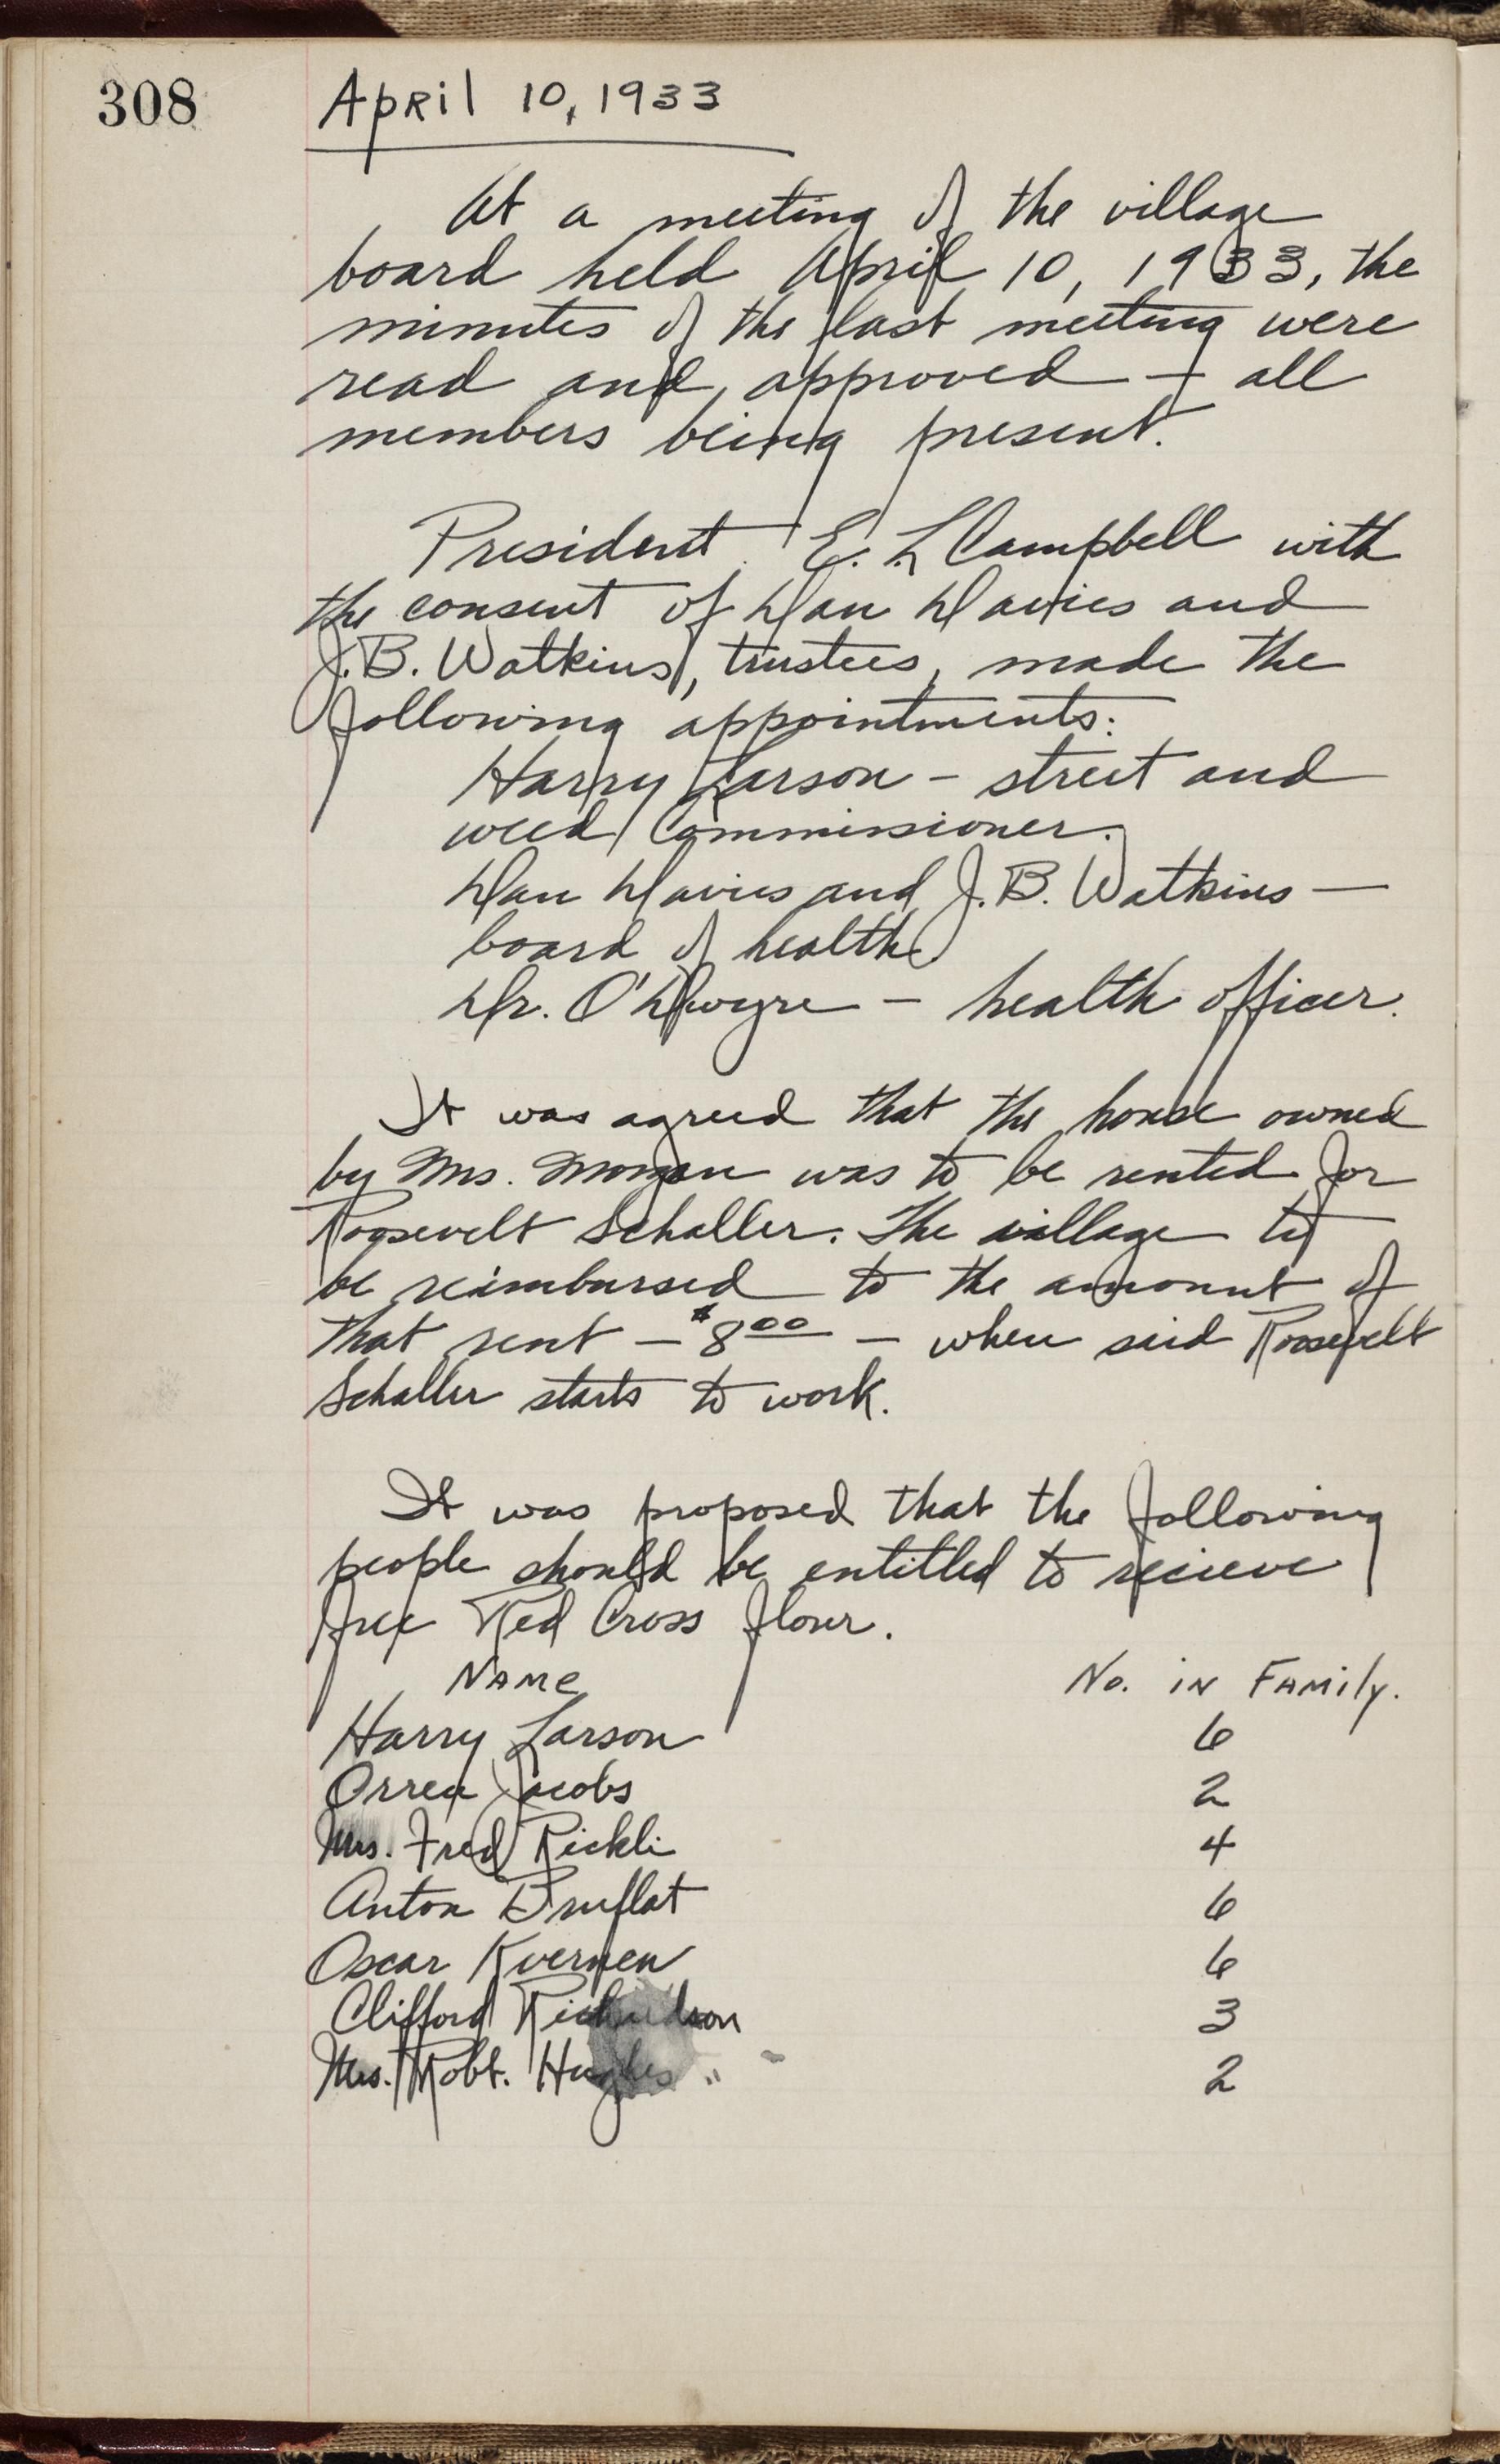 308
April 10, 1933
At a meeting of the village
board held April 10, 1933, the
minutes of the last meeting were
read and approved — all
members being present.
President E. L Campbell with
the consent of Dan Davies and
J. B. Watkins, trustees, made the
following appointments:
Harry Larson - street and
weed Commissioner.
Dan Davies and J. B. Watkins —
board of health
Dr. O'Dwyre - health officer.
It was agreed that the house owned
by Mrs. Morgan was to be rented for
Roosevelt Schaller. The village to
be reimbursed to the amount of
that rent — $8.00 — when said Roosevelt
Schaller starts to work.
It was proposed that the following
people should be entitled to recieve
free Red Cross flour.
Name No. in Family.
Harry Larson 6
Orren Jacobs 2
Mrs. Fred Rickli 4
Anton Bruflat 6
Oscar Kvernen 6
Clifford Richardson 3
Mrs. Robt. Hughes 2